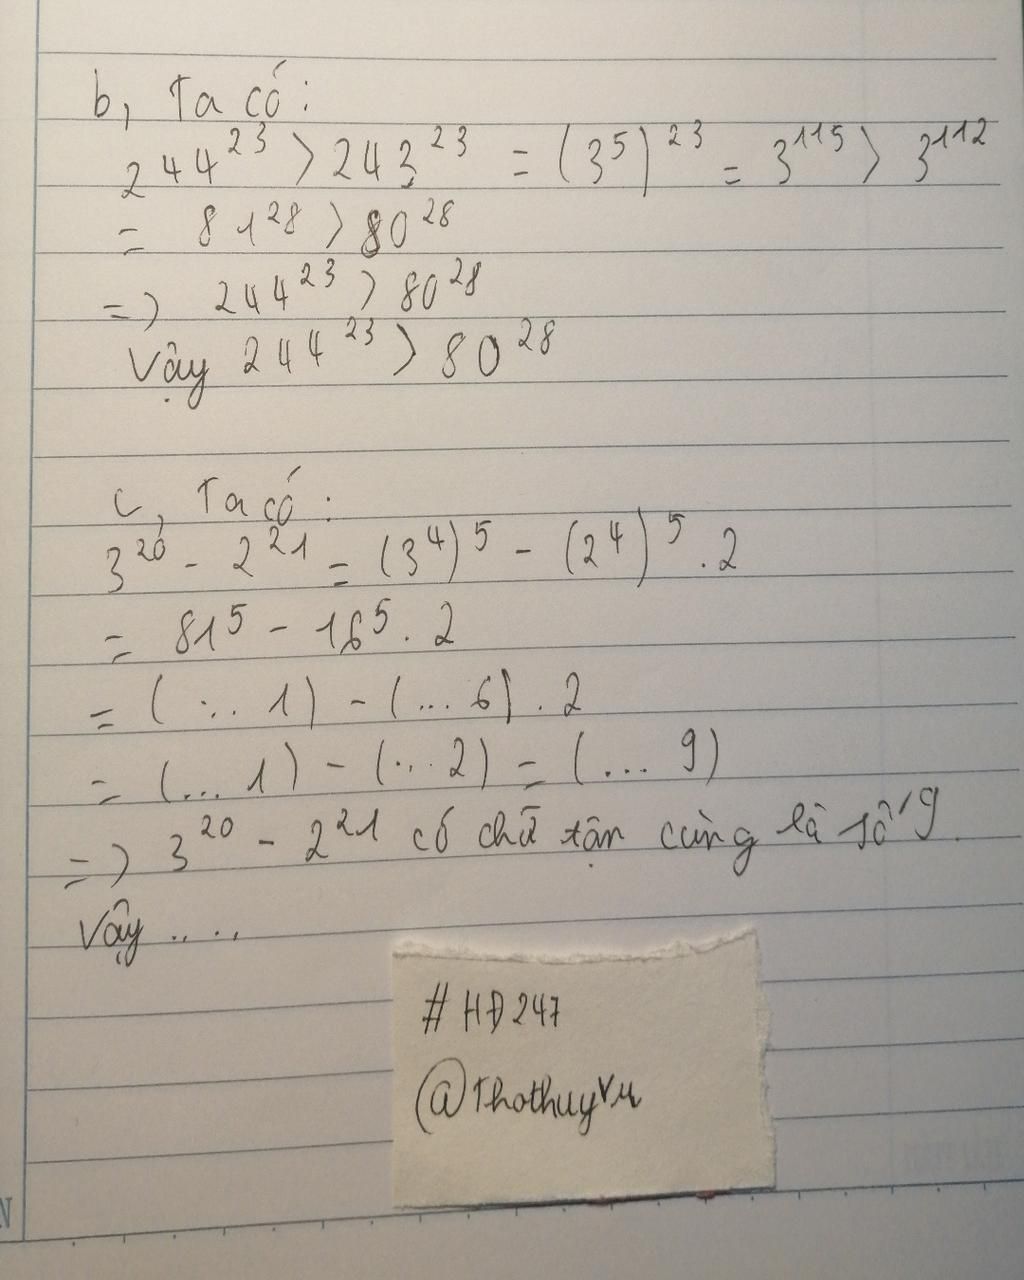 b, Ta có:
244^23 > 243^23 = (3^5)^23 = 3^115 > 3^112
= 81^28 > 80^28
=> 244^23 > 80^28
Vậy 244^23 > 80^28
c, Ta có:
3^20 - 2^21 = (3^4)^5 - (2^4)^5 . 2
= 81^5 - 16^5 . 2
= (... 1) - (... 6) . 2
= (... 1) - (... 2) = (... 9)
=> 3^20 - 2^21 có chữ tận cùng là số 9.
Vậy ....
# HĐ247
@ThothuyVu
N